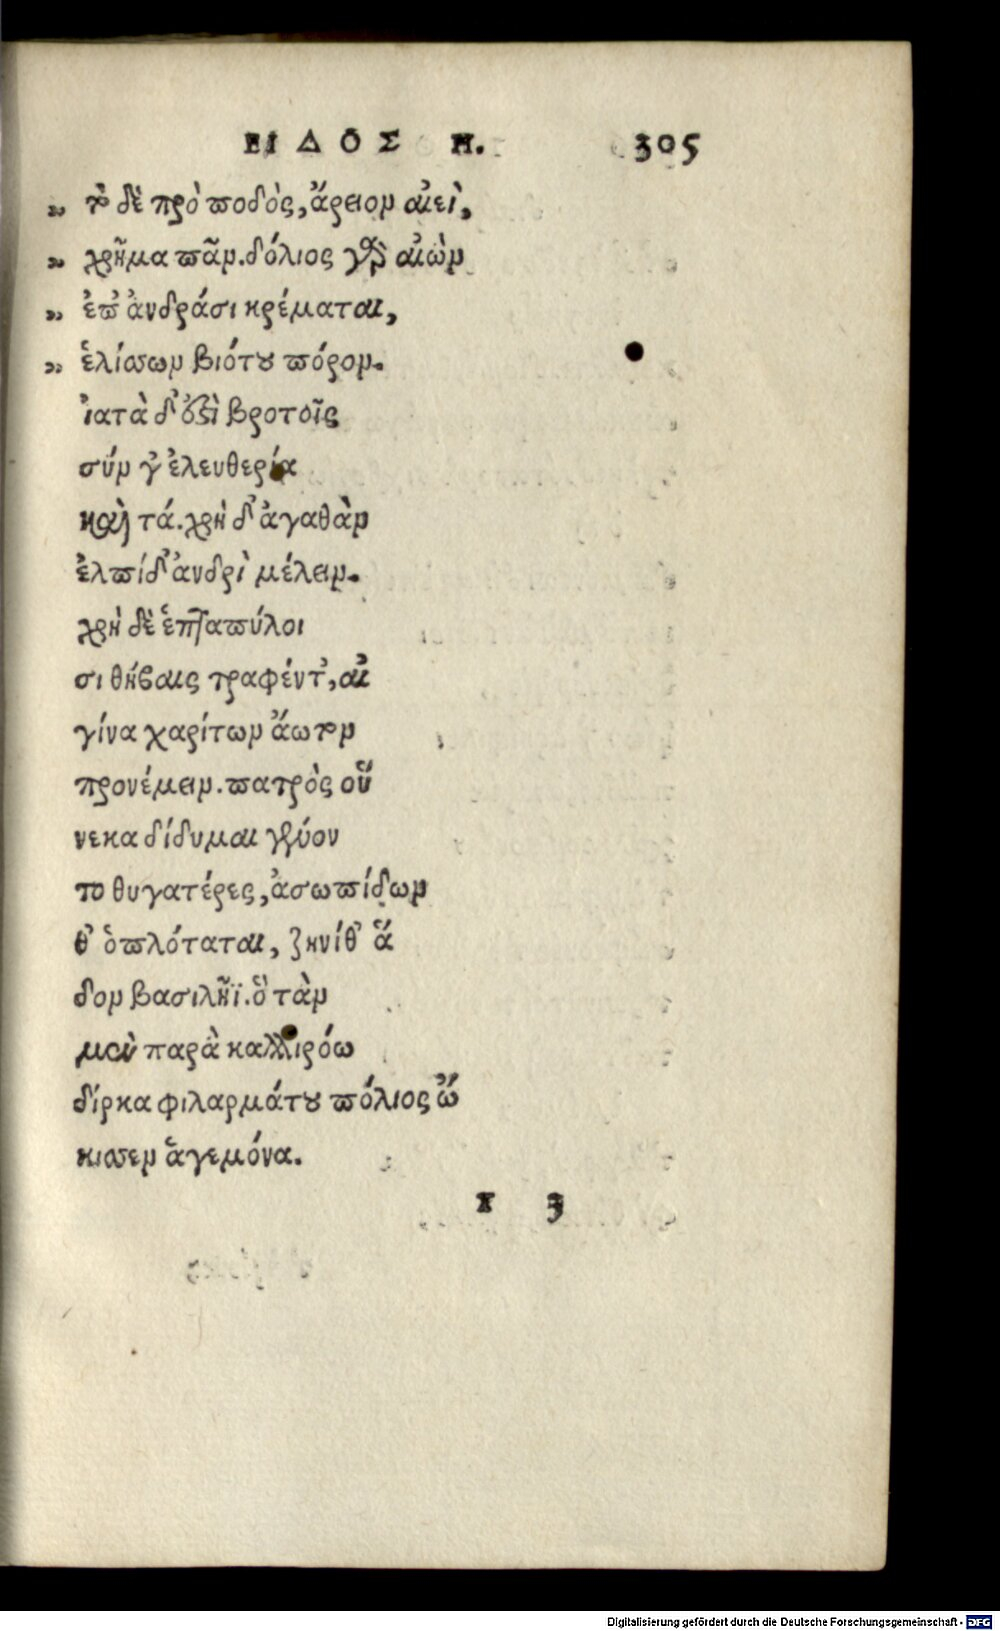 ΕΙΔΟΣ Η. 305
„ τὸ δὲ πρὸ ποδὸς, ἄρειον αἰεὶ,
„ χρῆμα πᾶν. δόλιος γὰρ αἰὼν
„ ἐπ᾽ ἀνδράσι κρέμαται,
„ ἑλίσσων βιότου πόρον.
ἰατὰ δ᾽ ἐστὶ βροτοῖς
σύν γ᾽ ἐλευθερίᾳ
καὶ τά. χρὴ δ᾽ ἀγαθὰν
ἐλπίδ᾽ ἀνδρὶ μέλειν.
χρὴ δὲ ἑπταπύλοι
σι θήβαις τραφέντ᾽, αἰ
γίνα χαρίτων ἄωτον
προνέμειν. πατρὸς οὕ
νεκα δίδυμαι γένον
το θυγατέρες, ἀσωπίδων
θ᾽ ὁπλόταται, ζηνίθ᾽ ἅ
δον βασιλῆϊ. ὃ τὰν
μὲν παρὰ καλλιρόω
δίρκα φιλαρμάτου πόλιος ᾤ
κισσεν ἁγεμόνα.
X 3
Digitalisierung gefördert durch die Deutsche Forschungsgemeinschaft - DFG